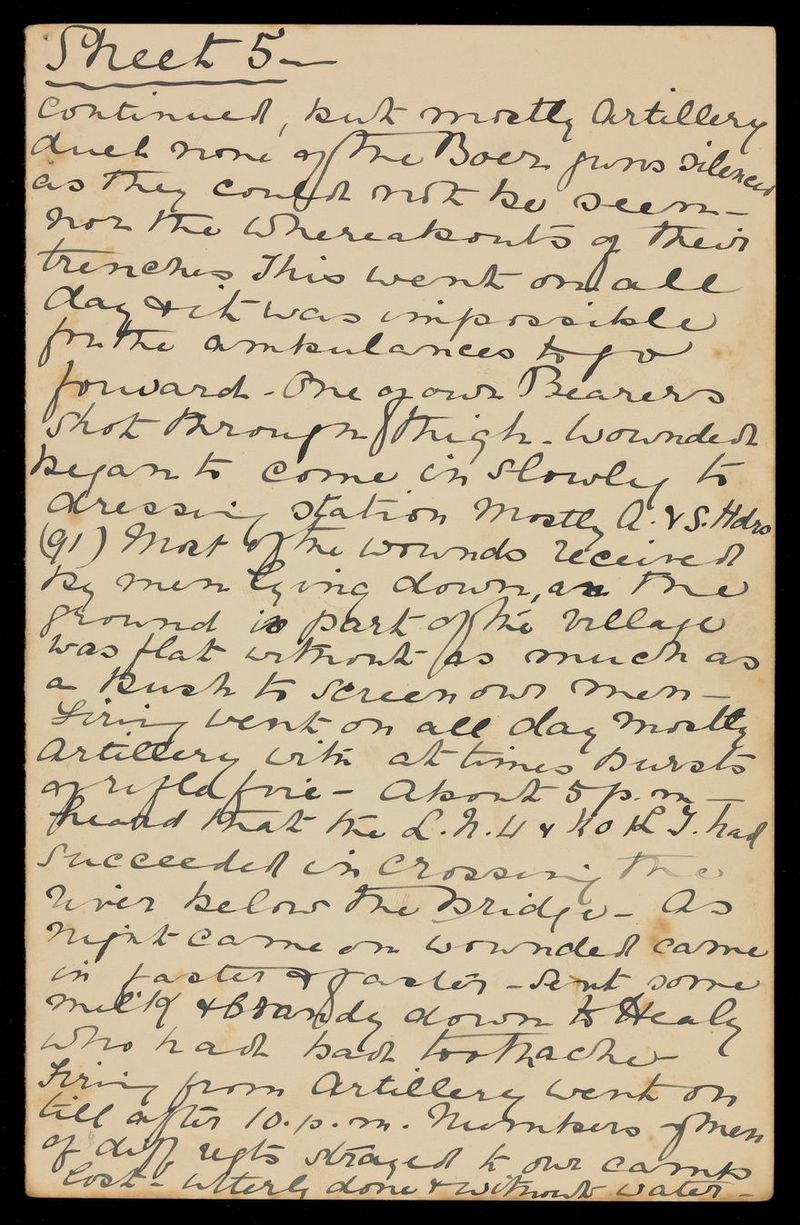 Sheet 5 —
continued, but mostly Artillery
duel none of the Boer guns silenced
as they could not be seen —
nor the whereabouts of their
trenches This went on all
day & it was impossible
for the ambulances to go
forward - One of our Bearers
shot through thigh - Wounded
began to come in slowly to
dressing station Mostly A. & S. Hdrs
(91) Most of the wounds received
by men lying down, as the
ground in part of the village
was flat without as much as
a bush to screen our men —
Firing went on all day mostly
Artillery with at times bursts
of rifle fire — About 5 p.m —
heard that the L. N. L & K O Y L I. had
succeeded in crossing the
river below the bridge — As
night came on wounded came
in faster & faster - sent some
milk & brandy down to Healy
who had bad toothache
Firing from Artillery went on
till after 10. p. m. Numbers of men
of diff regts strayed to our camp
lost - utterly done & without water -